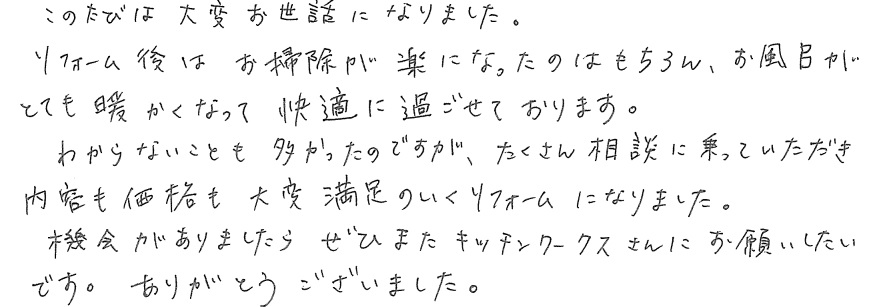 このたびは 大変お世話になりました。
リフォーム後は お掃除が楽になったのはもちろん、お風呂が
とても暖かくなって 快適に過ごせております。
わからないことも 多かったのですが、たくさん相談に乗っていただき
内容も価格も 大変満足のいくリフォームになりました。
機会がありましたら ぜひまたキッチンワークスさんにお願いしたい
です。 ありがとうございました。